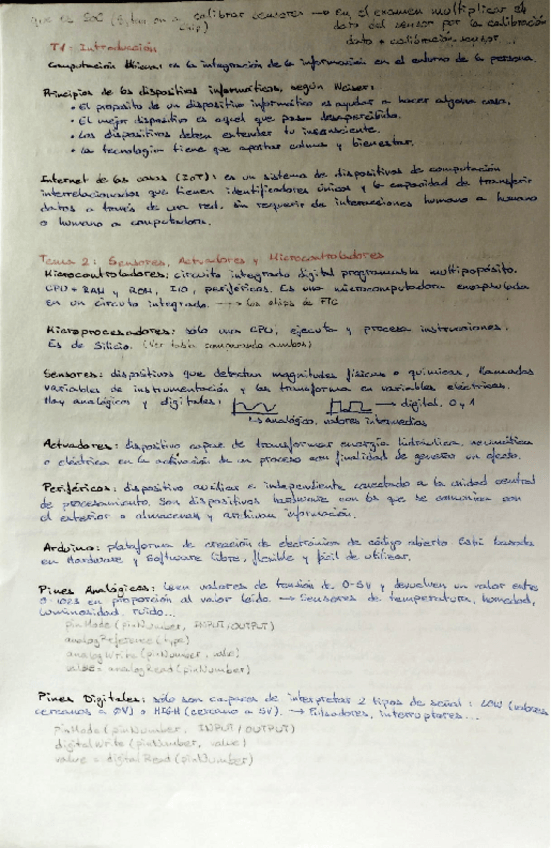 que es SoC (System on a chip) calibrar sensores → En el examen multiplicar el
dato del sensor por la calibración
dato + calibración sensor...
T1: Introducción
Computación Ubicua: es la integración de la información en el entorno de la persona.
Principios de los dispositivos informáticos, según Weiser:
• El propósito de un dispositivo informático es ayudar a hacer alguna cosa.
• El mejor dispositivo es aquel que pasa desapercibido.
• Los dispositivos deben extender tu insconciente.
• La tecnología tiene que aportar calma y bienestar.
Internet de las cosas (IoT): es un sistema de dispositivos de computación
interrelacionados que tienen identificadores únicos y la capacidad de transferir
datos a través de una red, sin requerir de interacciones humano a humano
o humano a computadora.
Tema 2: Sensores, Actuadores y Microcontroladores
Microcontroladores: circuito integrado digital programable multipropósito.
CPU + RAM y ROM, I/O, periféricos. Es una microcomputadora encapsulada
en un circuito integrado. → los chips de FTC
Microprocesadores: sólo una CPU, ejecuta y procesa instrucciones.
Es de Silicio. (Ver tabla comparando ambos)
Sensores: dispositivos que detectan magnitudes físicas o químicas, llamadas
variables de instrumentación y las transforma en variables eléctricas.
Hay analógicos y digitales: → digital, 0 y 1
↳ analógico, valores intermedios
Actuadores: dispositivo capaz de transformar energía hidráulica, neumática
o eléctrica en la activación de un proceso con finalidad de generar un efecto.
Periféricos: dispositivo auxiliar e independiente conectado a la unidad central
de procesamiento. Son dispositivos hardware con los que se comunica con
el exterior o almacenan y archivan información.
Arduino: plataforma de creación de electrónica de código abierto. Está basada
en Hardware y Software libre, flexible y fácil de utilizar.
Pines Analógicos: leen valores de tensión de 0-5V y devuelven un valor entre
0-1023 en proporción al valor leído. → Sensores de temperatura, humedad,
luminosidad, ruido...
pinMode (pinNumber, INPUT/OUTPUT)
analogReference (type)
analogWrite (pinNumber, value)
value = analogRead (pinNumber)
Pines Digitales: sólo son capaces de interpretar 2 tipos de señal: LOW (valores
cercanos a 0V) o HIGH (cercano a 5V). → Pulsadores, interruptores...
PinMode (pinNumber, INPUT/OUTPUT)
digitalWrite (pinNumber, value)
value = digitalRead (pinNumber)